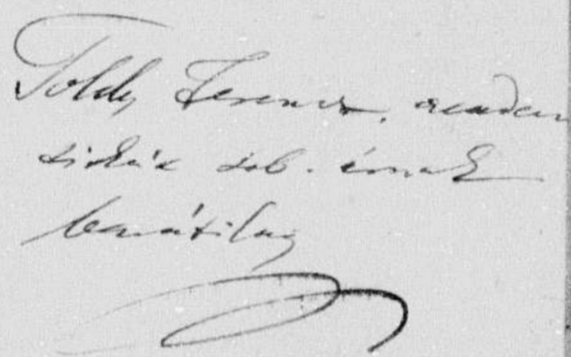 Toldy Ferencz, academ
titkár stb. úrnak
barátilag